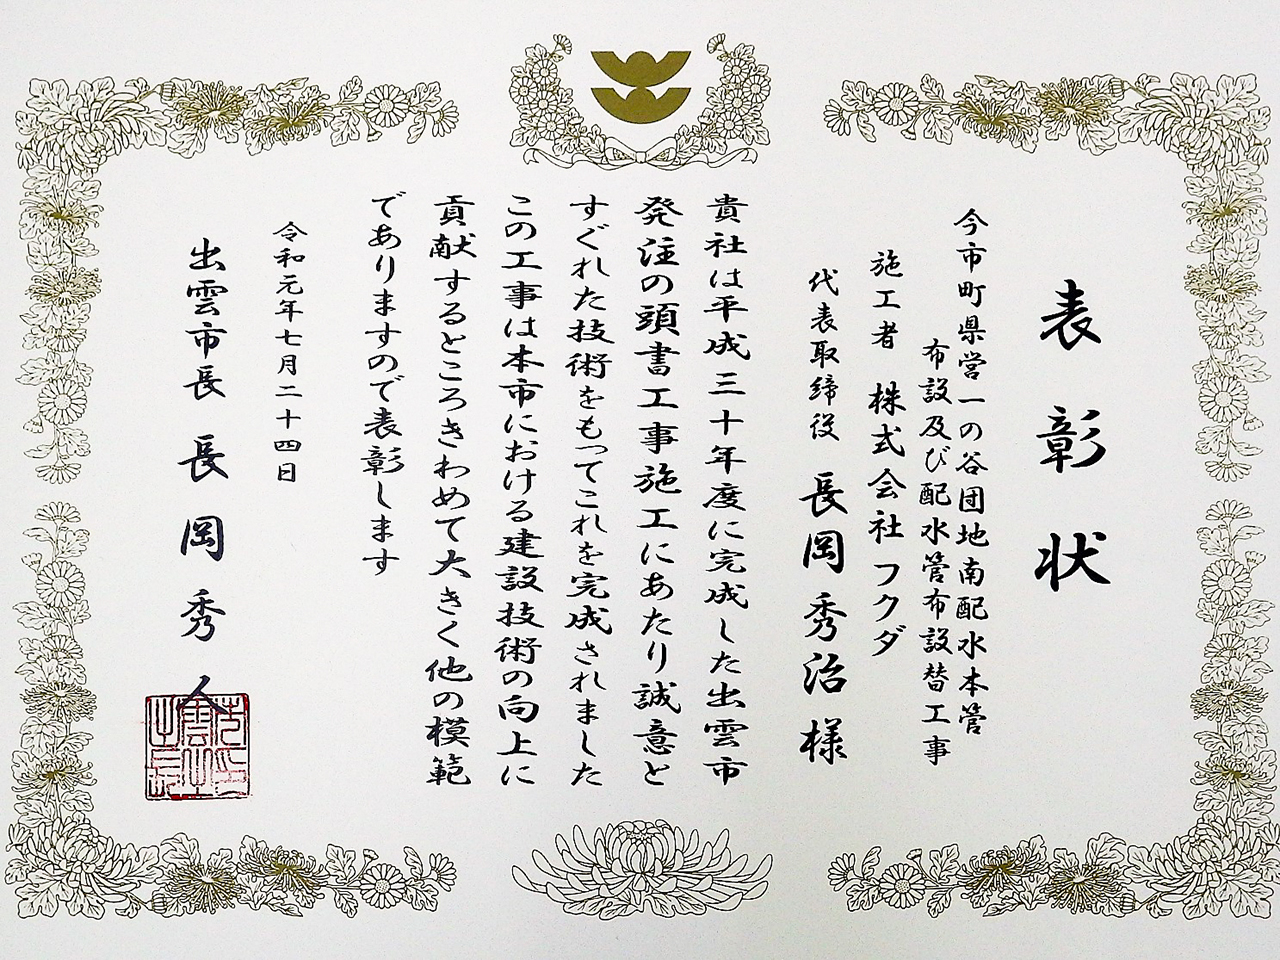 表彰状
今市町県営一の谷団地南配水本管
布設及び配水管布設替工事
施工者 株式会社フクダ
代表取締役 長岡秀治様
貴社は平成三十年度に完成した出雲市
発注の頭書工事施工にあたり誠意と
すぐれた技術をもってこれを完成されました
この工事は本市における建設技術の向上に
貢献するところきわめて大きく他の模範
でありますので表彰します
令和元年七月二十四日
出雲市長 長岡秀人